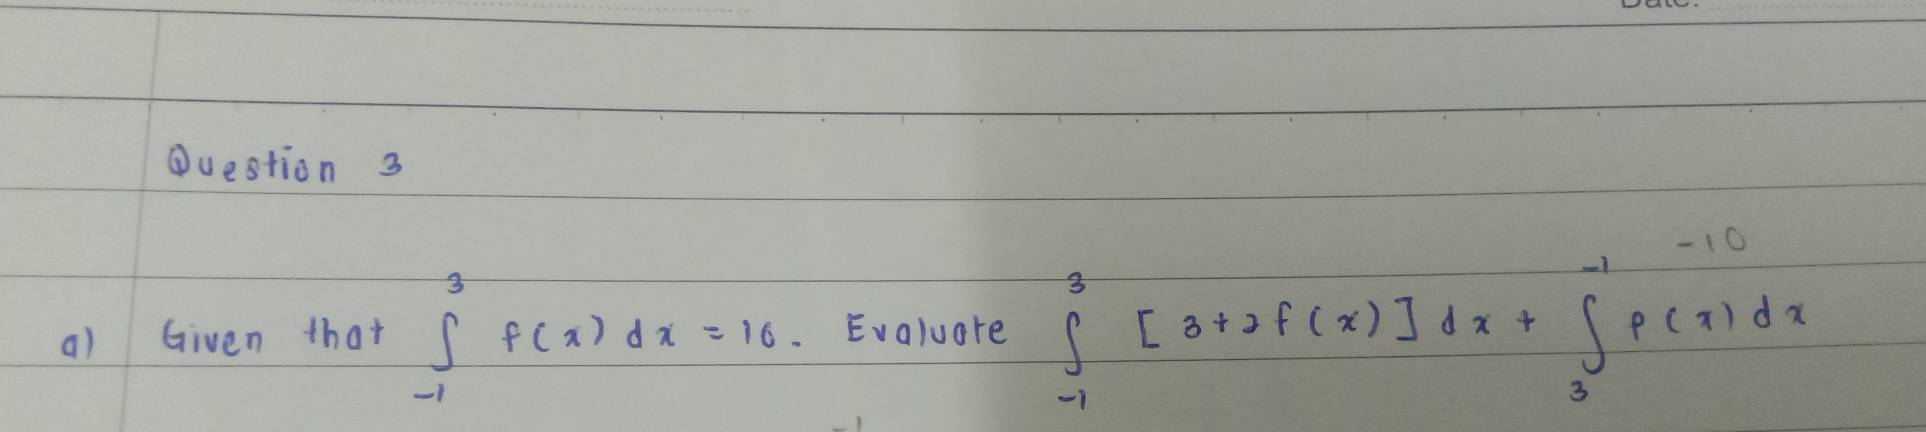 Date:
Question 3
-10
a) Given that ∫₋₁³ f(x) dx = 10. Evaluate ∫₋₁³ [3+2f(x)] dx + ∫₃⁻¹ f(x) dx
-1